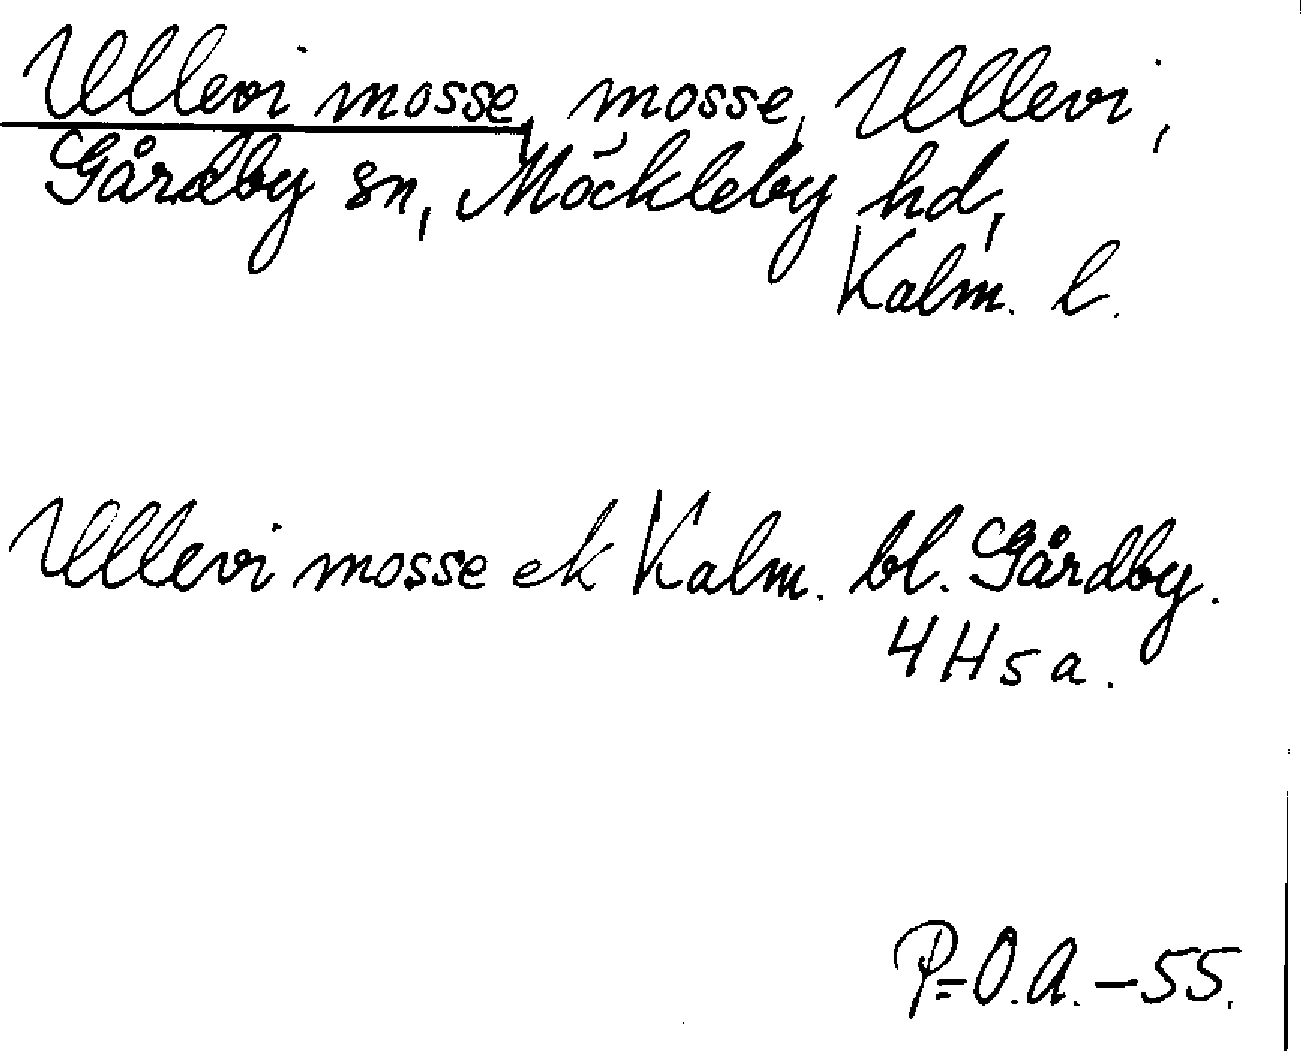 Ullevi mosse, mosse, Ullevi,
Gårdby sn, Möckleby hd,
Kalm. l.
Ullevi mosse ek Kalm. bl. Gårdby.
4H5a.
P=O.A.-55.